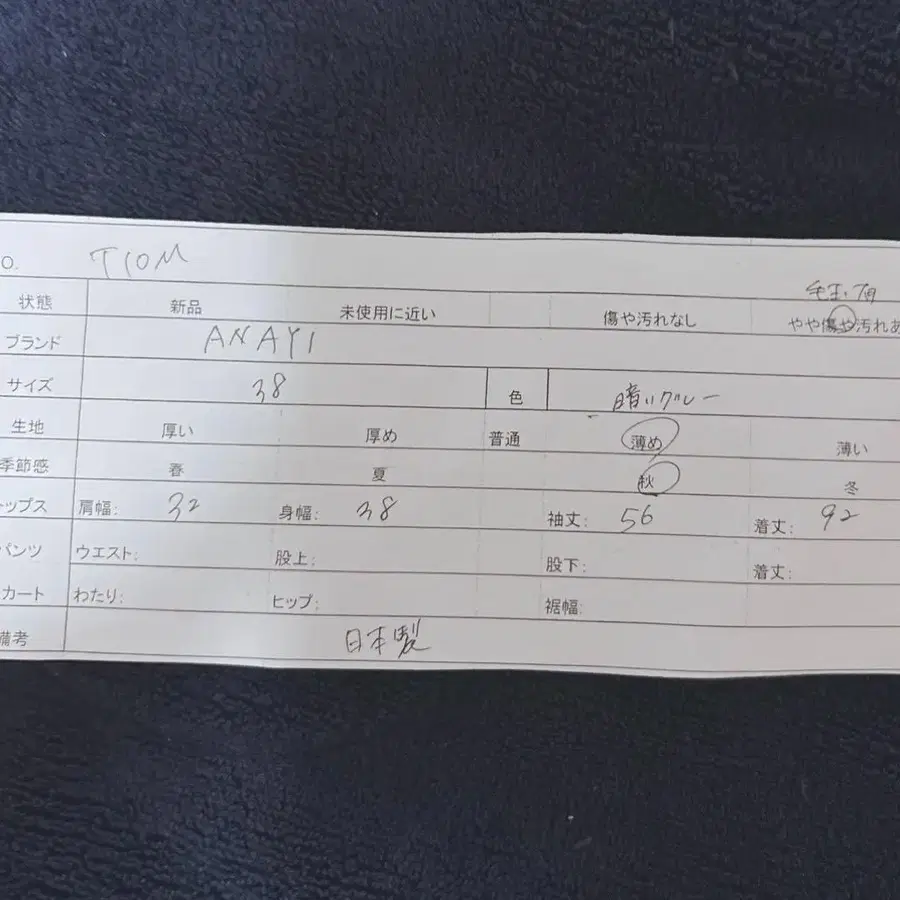 O. T10M
状態 新品 未使用に近い 傷や汚れなし 毛玉・
やや傷や汚れあ
ブランド ANAYI
サイズ 38 色 暗いグレー
生地 厚い 厚め 普通 薄め 薄い
季節感 春 夏 秋 冬
ップス 肩幅: 32 身幅: 38 袖丈: 56 着丈: 92
パンツ ウエスト: 股上: 股下: 着丈:
カート わたり: ヒップ: 裾幅:
備考 日本製